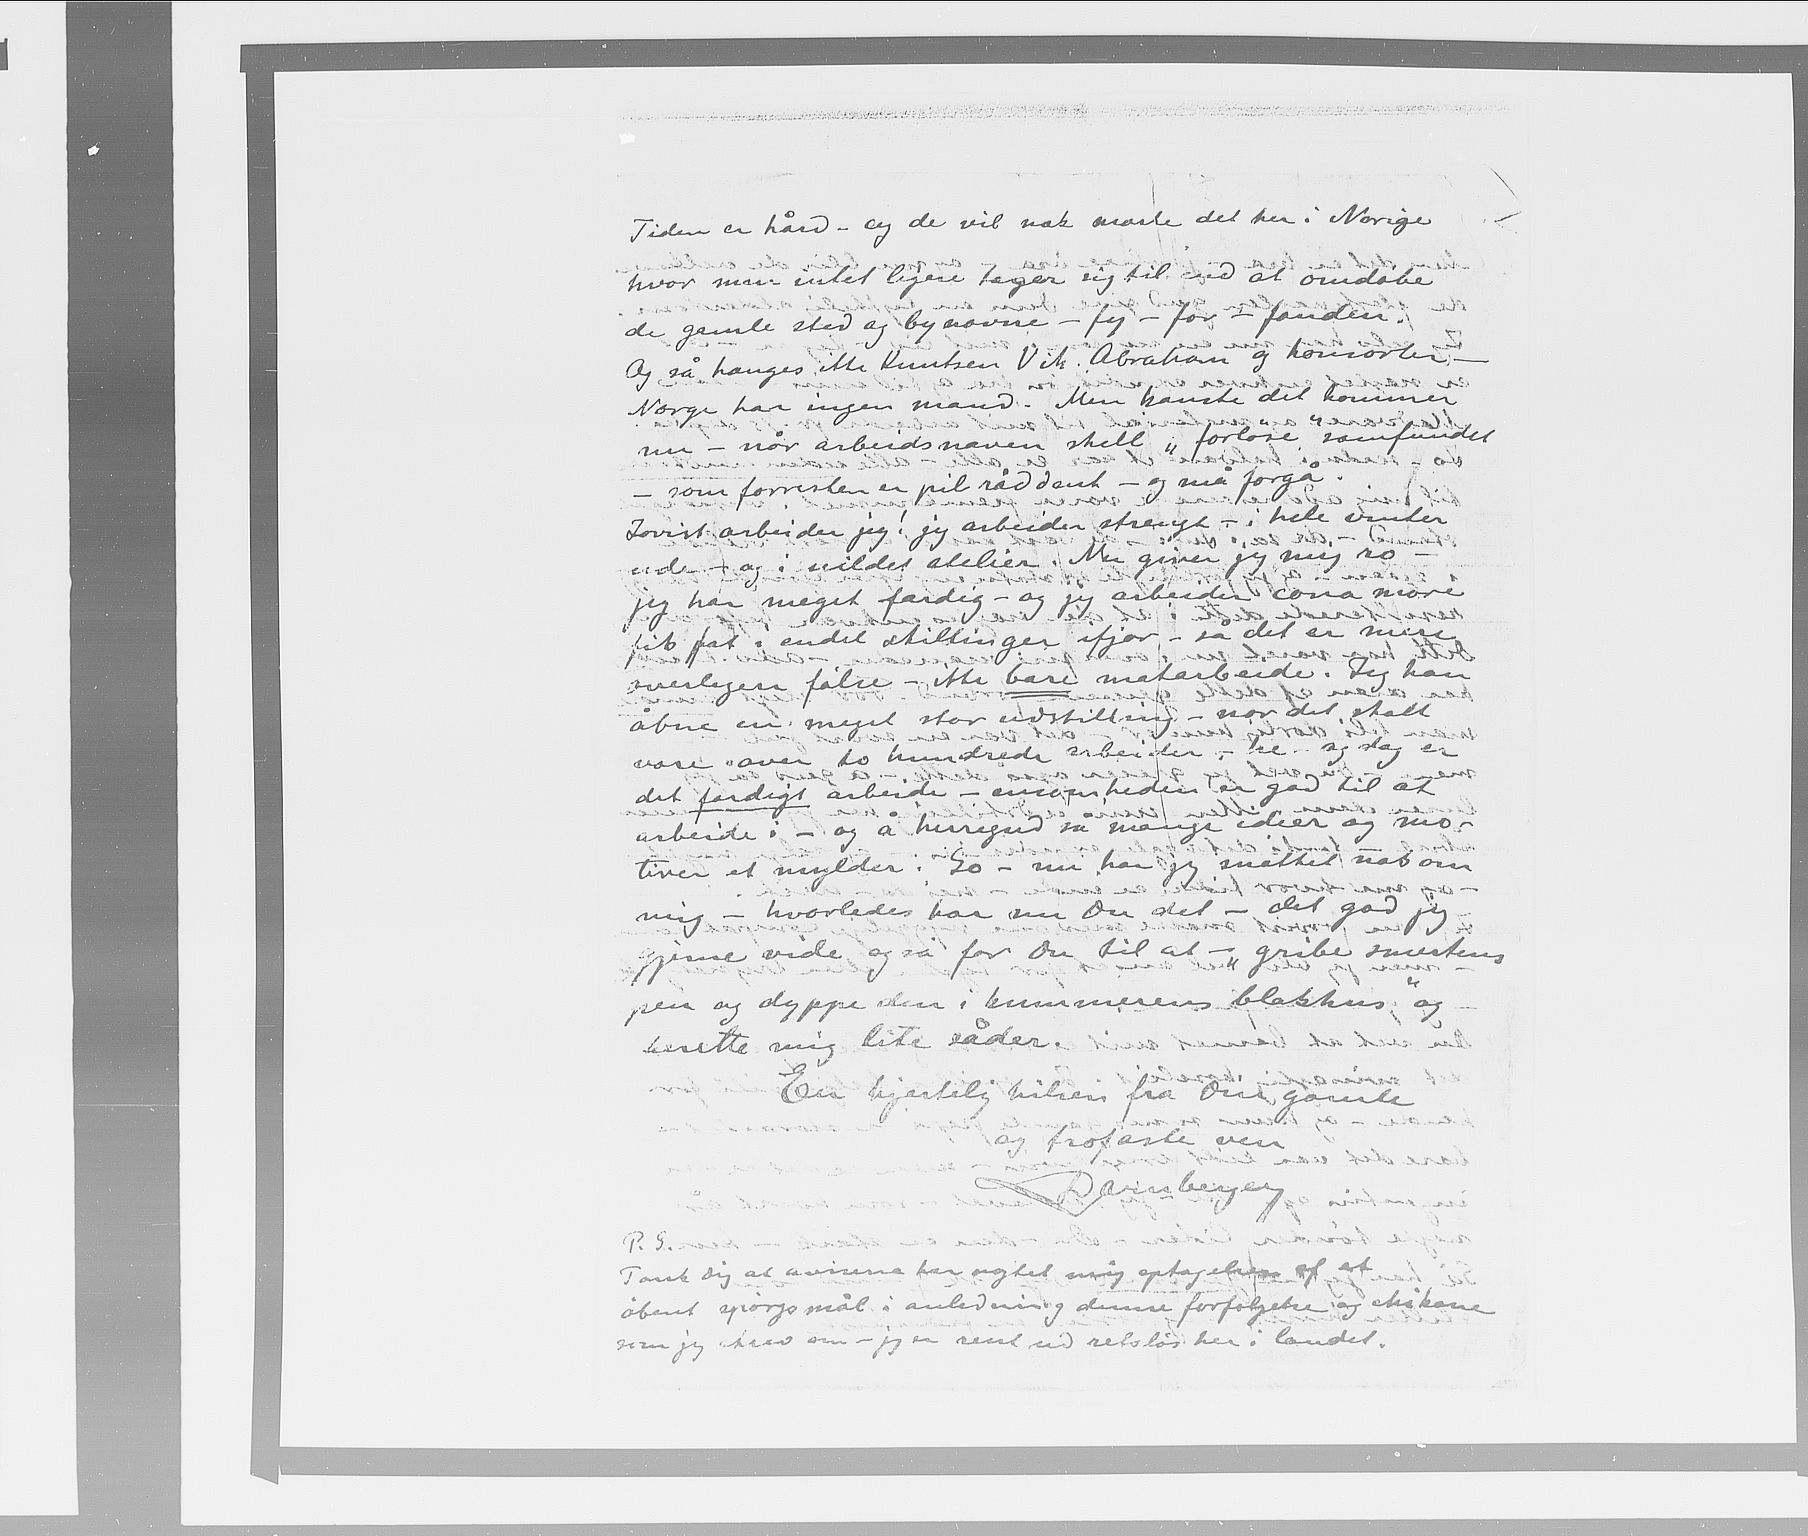 Tiden er hård – og de vil nok mærke det her i Norige
hvor man intet ligere tager sig til end at omdøbe
de gamle sted og bynavne – fy – for – fanden.
Og så hænges ikke Knutsen Vik. Abraham og konsorter –
Norge har ingen mand. Men kanske det kommer
nu – når arbeidsnæven skall „forløse" samfundet
– som forresten er pil råddent – og må forgå.
Jovist arbeider jeg! jeg arbeider strengt – i hele vinter
ude – og i vildet atelier. Nu giver jeg mig ro –
jeg har meget færdig – og jeg arbeider con amore
fik fat i endel skillinger ifjor – så det er min
overlegen følse – ikke bare matarbeide. Jeg kan
åbne en meget stor udstilling – når det skall
være over to hundrede arbeider – he – og slag er
det færdigt arbeide – ensomheden er god til at
arbeide i – og å herregud så mange ideer og mo-
tiver et mylder. So – nu har jeg snakket nok om
mig – hvorledes har nu Du det – det gad jeg
gjerne vide også får Du til at – „gribe smertens
pen og dyppe den i kummerens blækhus" og
berette mig lite såder.
En hjertelig hilsen fra Din gamle
og trofaste ven
Dørnberger
P. S.
Tænk dig at aviserne har nægtet mig optagelsen af et
åbent spørgsmål i anledning denne forfølgelse og chikane
som jeg skrev om – jeg er rent ud retsløs her i landet.